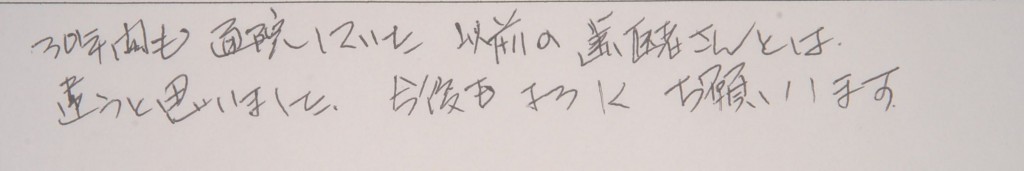 30年間も通院していた以前の歯医者さんとは
違うと思いました、今後もよろしくお願いします